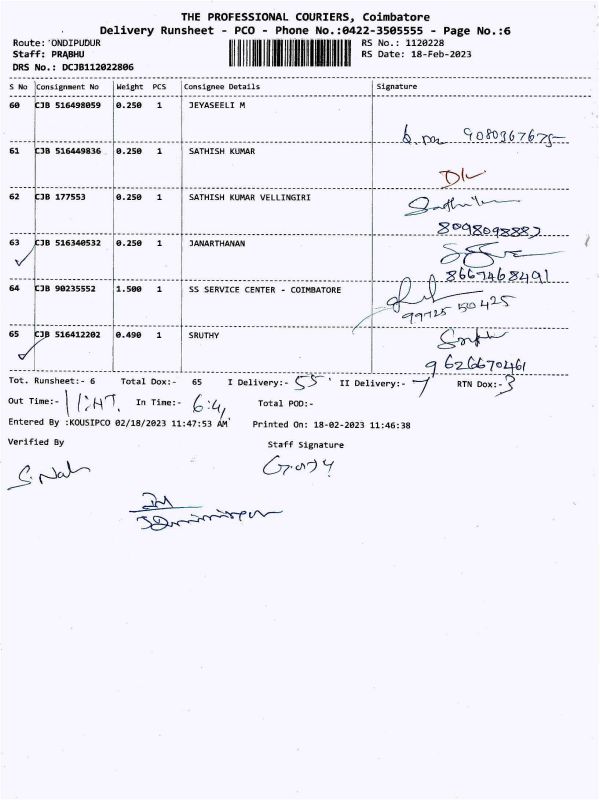 THE PROFESSIONAL COURIERS, Coimbatore
Delivery Runsheet - PCO - Phone No.:0422-3505555 - Page No.:6
Route: ONDIPUDUR RS No.: 1120228
Staff: PRABHU RS Date: 18-Feb-2023
DRS No.: DCJB112022806
S No Consignment No Weight PCS Consignee Details Signature
60 CJB 516498059 0.250 1 JEYASEELI M
61 CJB 516449836 0.250 1 SATHISH KUMAR
62 CJB 177553 0.250 1 SATHISH KUMAR VELLINGIRI
8098098887
63 CJB 516340532 0.250 1 JANARTHANAN
8667468491
64 CJB 90235552 1.500 1 SS SERVICE CENTER - COIMBATORE
99725 50425
65 CJB 516412202 0.490 1 SRUTHY
9626670461
Tot. Runsheet:- 6 Total Dox:- 65 I Delivery:- 55 II Delivery:- 7 RTN Dox:- 3
Out Time:- In Time:- Total POD:-
Entered By :KOUSIPCO 02/18/2023 11:47:53 AM Printed On: 18-02-2023 11:46:38
Verified By Staff Signature